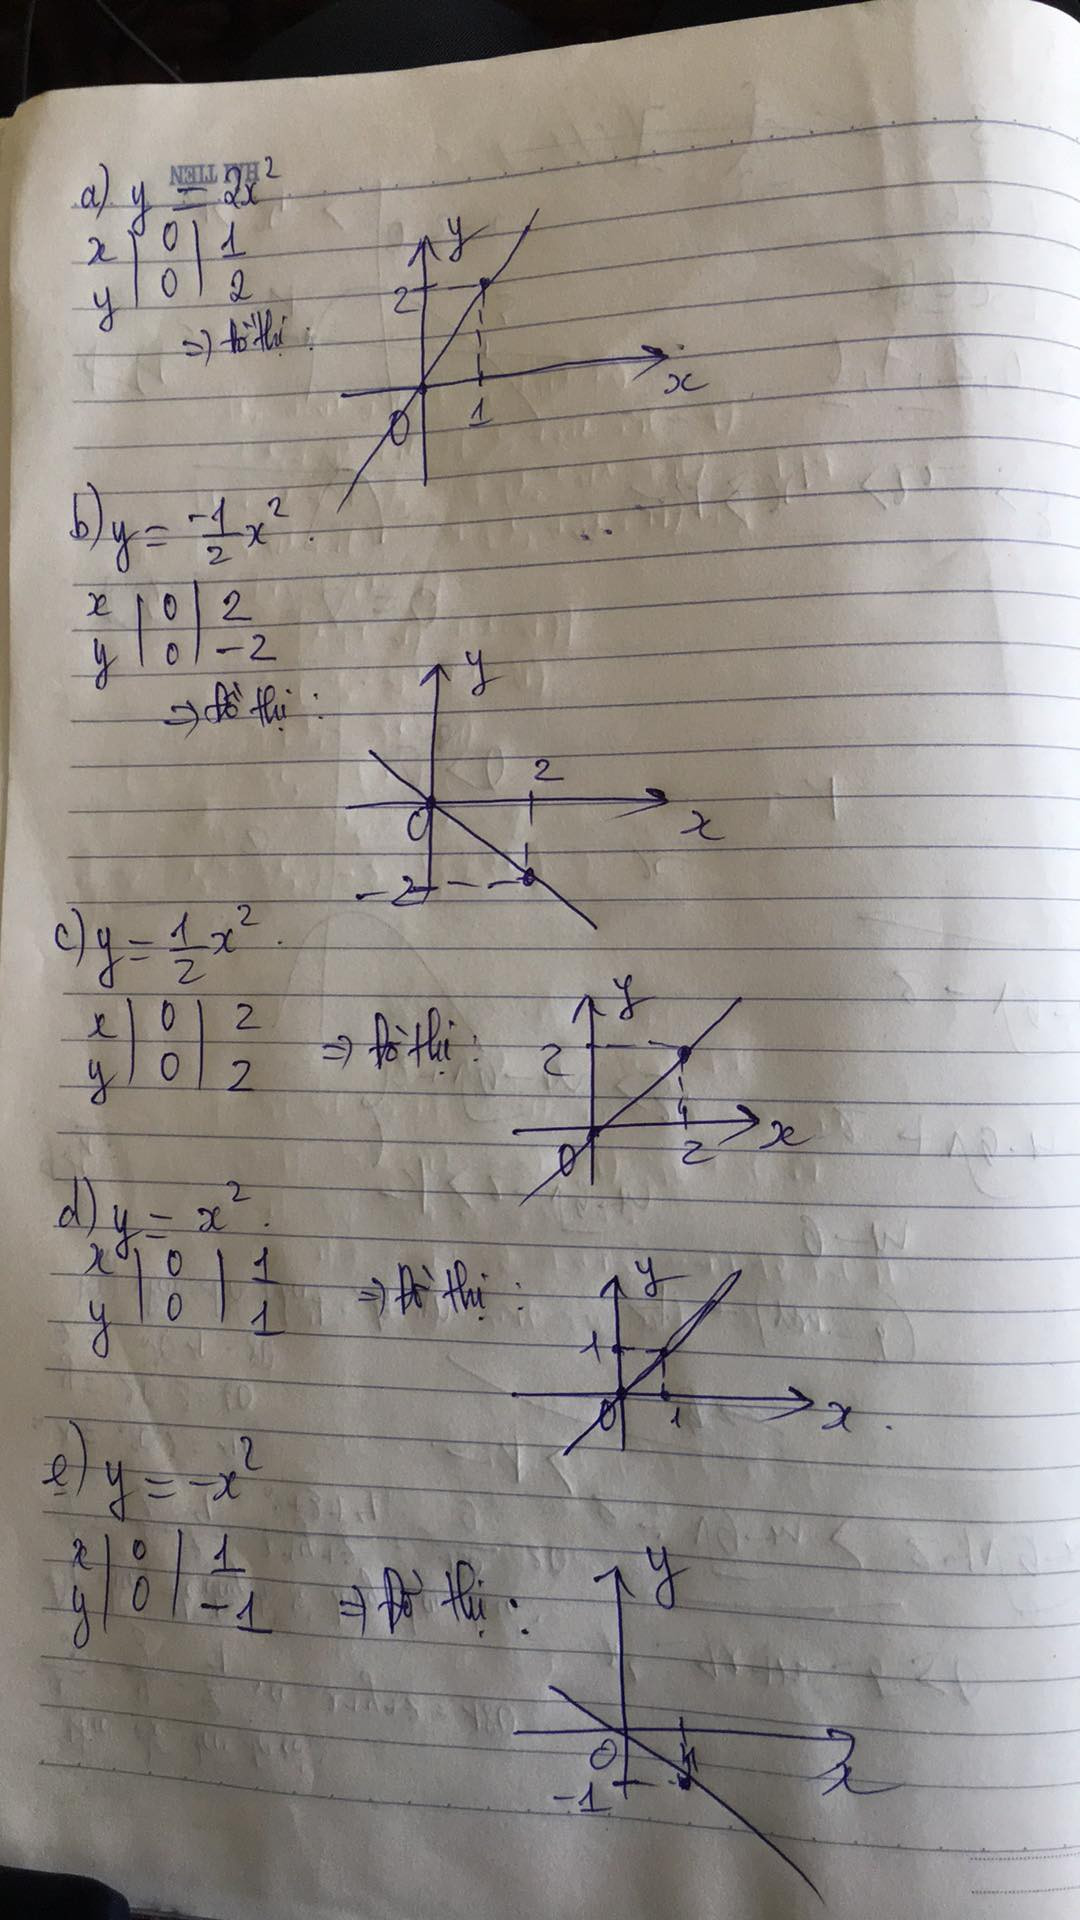 HẢI TIẾN
a) y = 2x²
x | 0 | 1
y | 0 | 2
=) Đồ thị :
y
2
x
0
1
b) y = -1/2 x² .
x | 0 | 2
y | 0 | -2
=) Đồ thị :
y
2
0
x
-2
c) y = 1/2 x² .
x | 0 | 2
y | 0 | 2
=) Đồ thị :
y
2
x
0
2
d) y = x² .
x | 0 | 1
y | 0 | 1
=) Đồ thị :
y
1
0
1
x .
e) y = -x²
x | 0 | 1
y | 0 | -1
=) Đồ thị :
y
0
1
x
-1